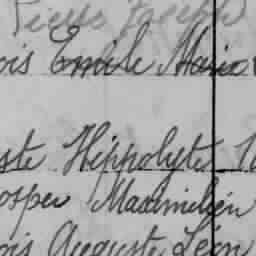 Pierre Joseph
ois Emile Marie
ste Hippolyte
osper Maximilien
ois Auguste Léon